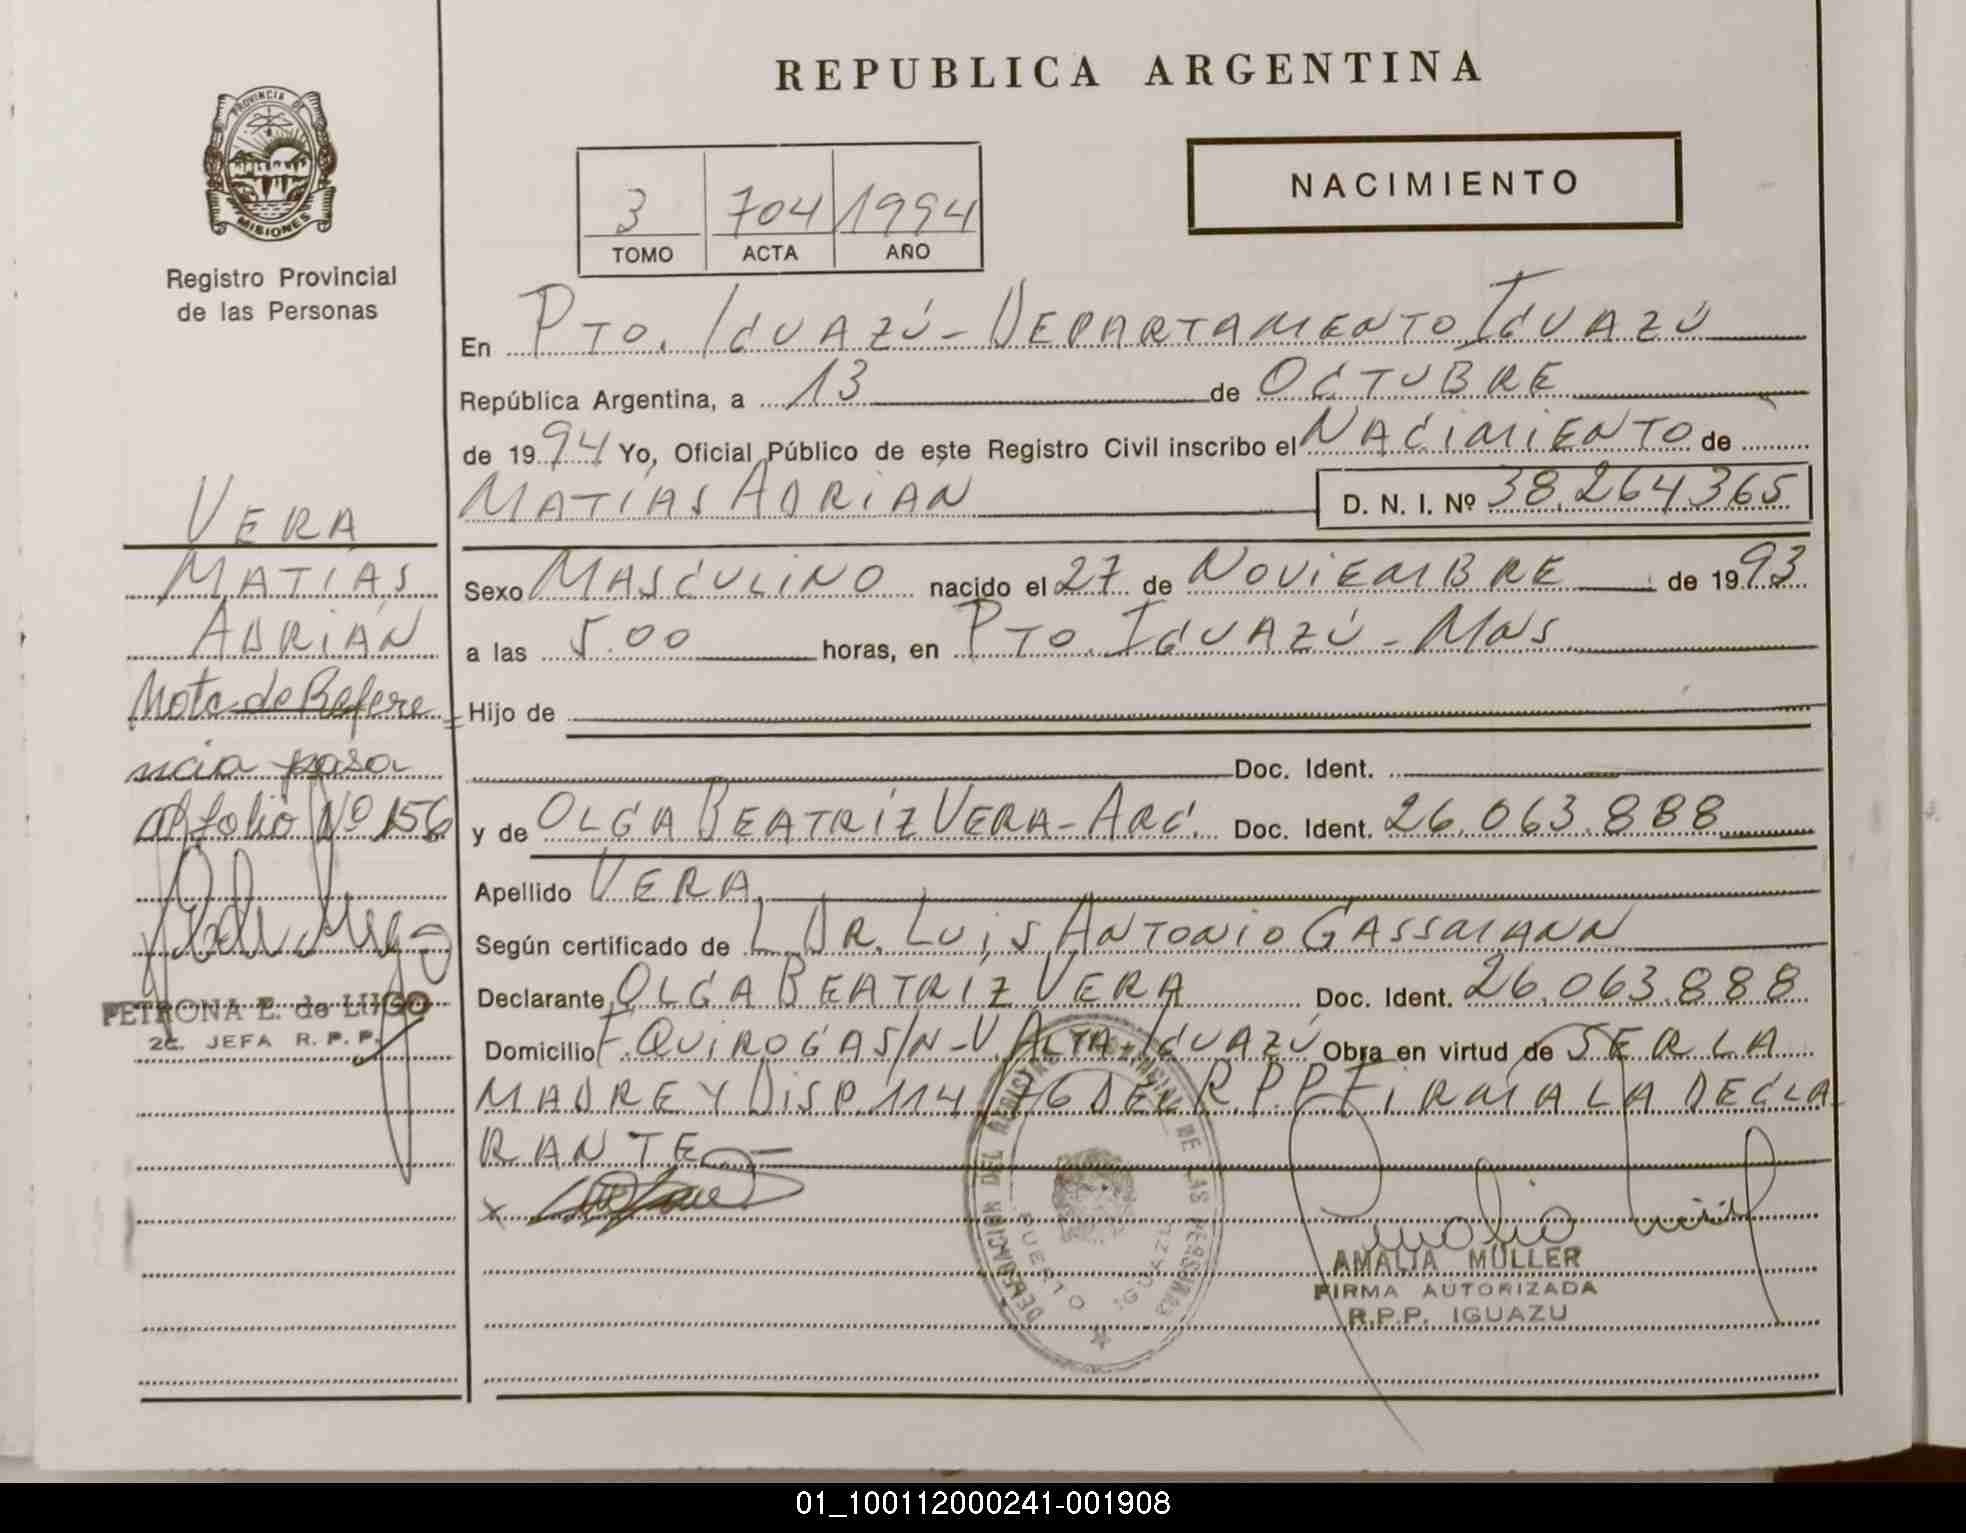 REPUBLICA ARGENTINA
PROVINCIA DE
MISIONES
Registro Provincial
de las Personas
NACIMIENTO
3 704 1994
TOMO ACTA AÑO
En PTO. IGUAZÚ - DEPARTAMENTO IGUAZÚ
República Argentina, a 13 de OCTUBRE
de 1994 Yo, Oficial Público de este Registro Civil inscribo el NACIMIENTO de
MATÍAS ADRIAN D. N. I. Nº 38.264.365
Sexo MASCULINO nacido el 27 de NOVIEMBRE de 1993
a las 5.00 horas, en PTO. IGUAZÚ - MNS
Hijo de
Doc. Ident.
y de OLGA BEATRÍZ VERA - ARG. Doc. Ident. 26.063.888
Apellido VERA
Según certificado de L. DR. LUIS ANTONIO GASSMANN
Declarante OLGA BEATRÍZ VERA Doc. Ident. 26.063.888
Domicilio F. QUIROGA S/N - V. ALTA - IGUAZÚ Obra en virtud de SER LA
MADRE Y DISP. 114/76 DEL R.P.P. FIRMA LA DECLA
RANTE
x
AMALIA MULLER
FIRMA AUTORIZADA
R.P.P. IGUAZU
DELEGACION DEL REGISTRO PROVINCIAL DE LAS PERSONAS
PUERTO IGUAZU
VERA
MATÍAS
ADRIÁN
Nota de Refere
ncia pasa
al folio Nº 156
PETRONA E. de LUGO
2da. JEFA R. P. P.
01_100112000241-001908